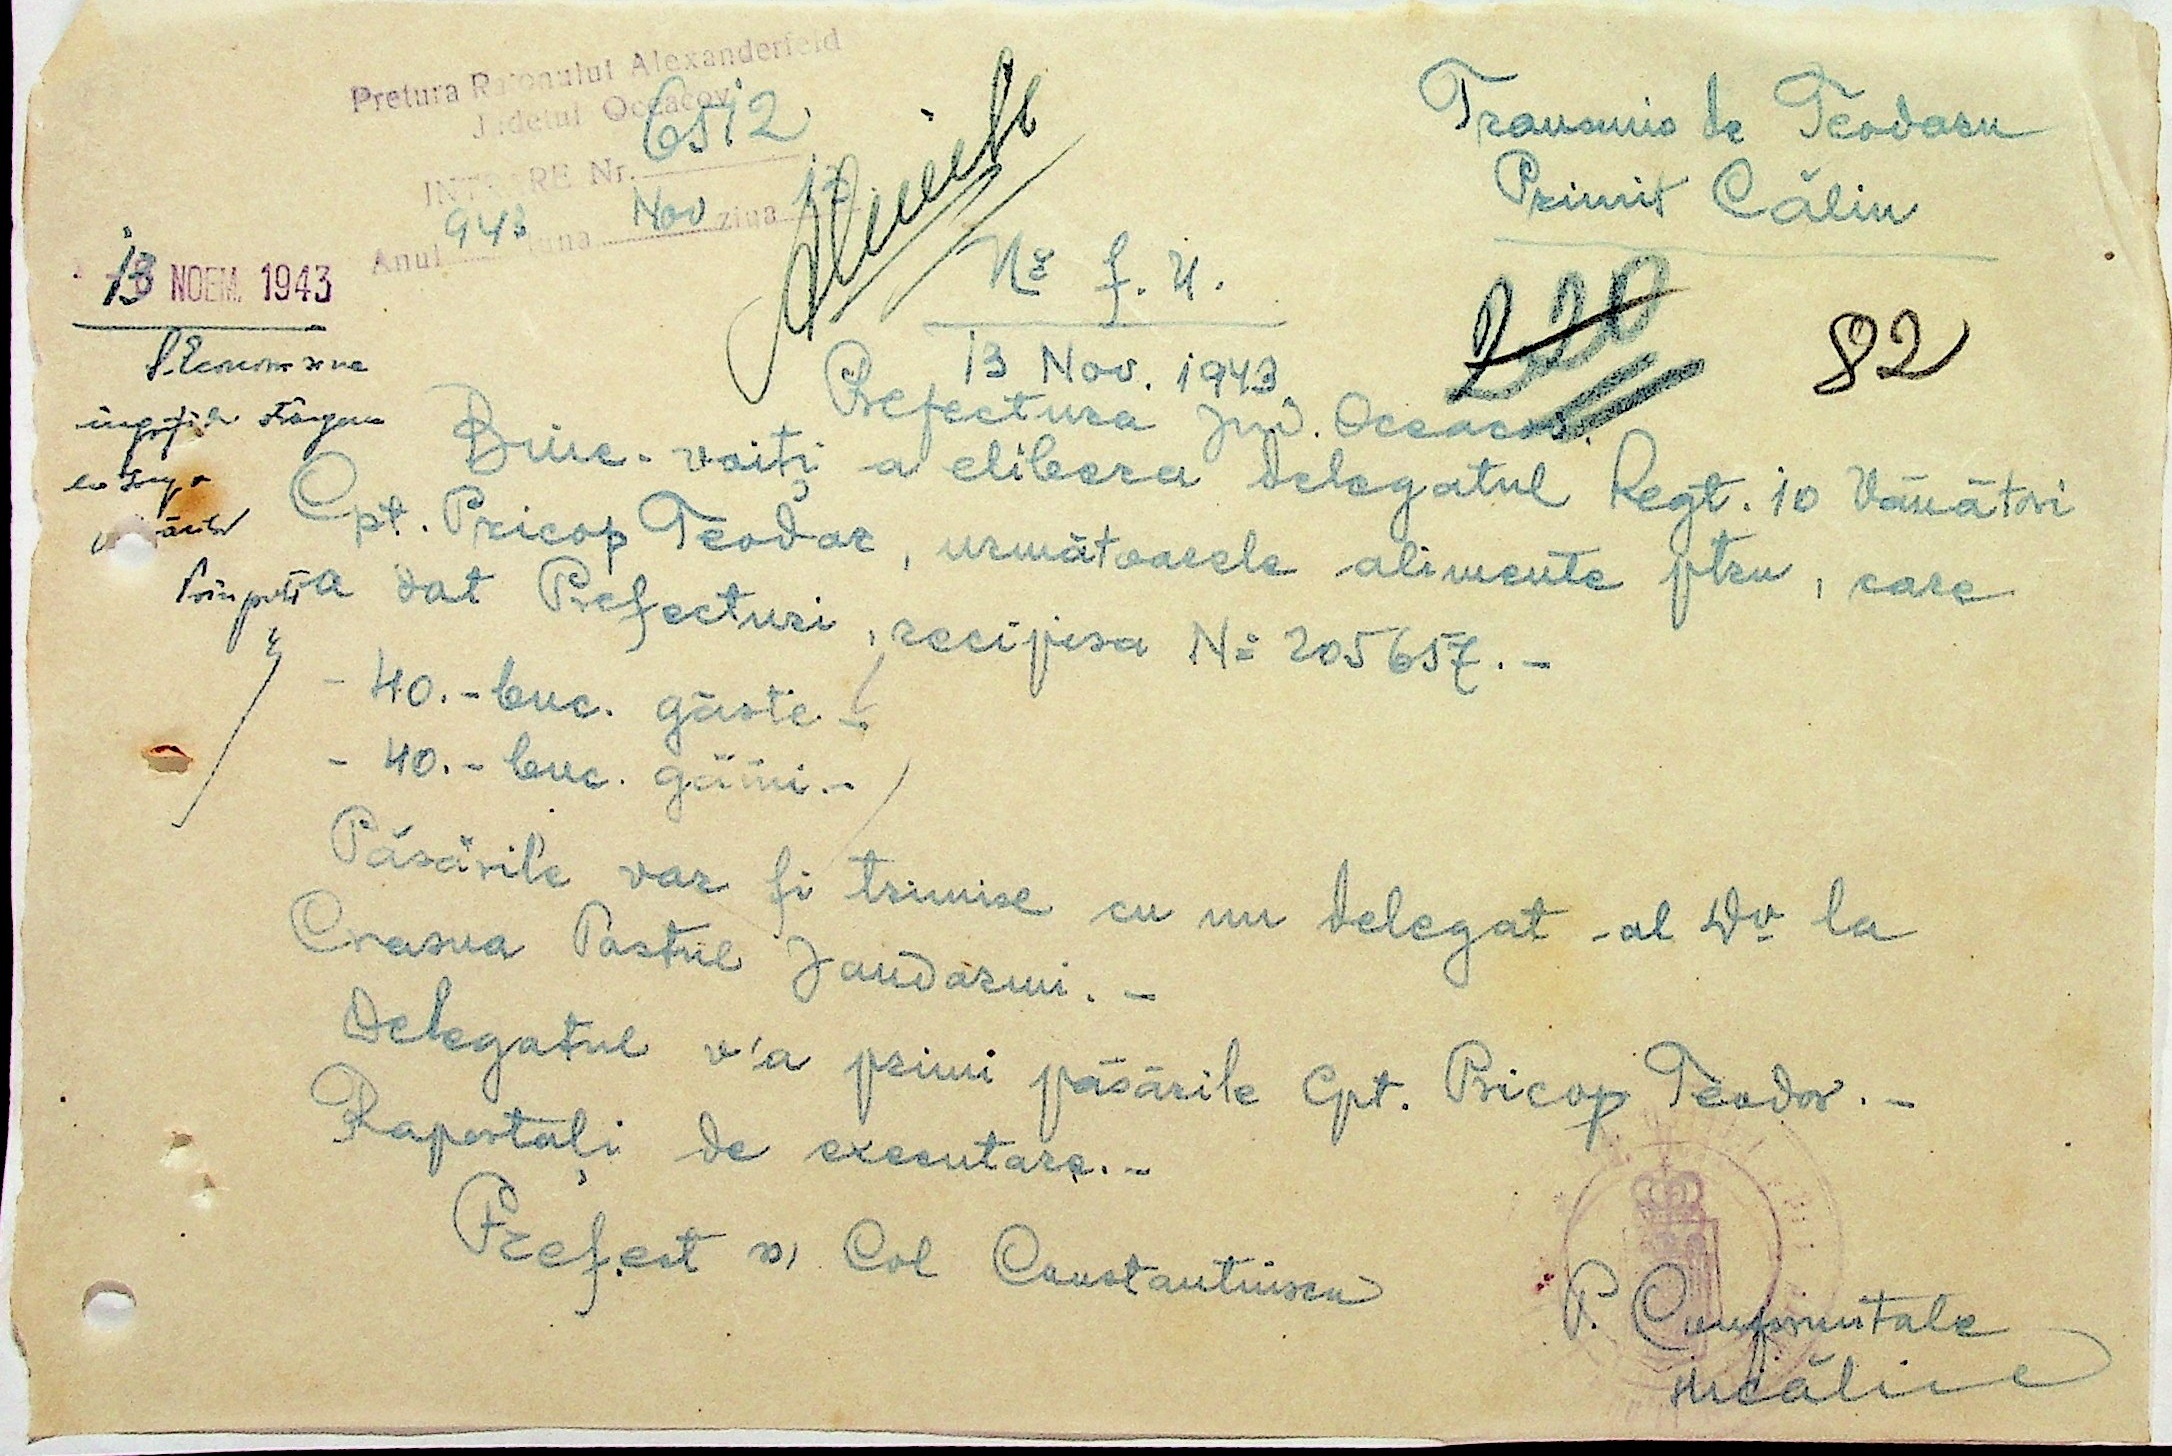 Pretura Raionului Alexanderfeld
Județul Oceacov
INTRARE Nr. 6512
Anul 943 luna Nov ziua 13
Transmis de Teodoru
Primit Călin
13 NOEM. 1943
No f. N.
13 Nov. 1943
220
82
Prefectura Jud. Oceacov.
Bine-voiți a elibera delegatul Regt. 10 Vânători
Cpt. Pricop Teodor, următoarele alimente ptru, care
a dat Prefecturi, recipisa No 205657.-
- 40.- buc. gâște.-
- 40.- buc. găini.-
Păsările vor fi trimise cu un delegat al Dv la
Crasna Postul Jandarmi.-
Delegatul v'a primi păsările Cpt. Pricop Teodor.-
Raportați de executare.-
Prefect ss Col Constantinescu
P. Conformitate
Călin